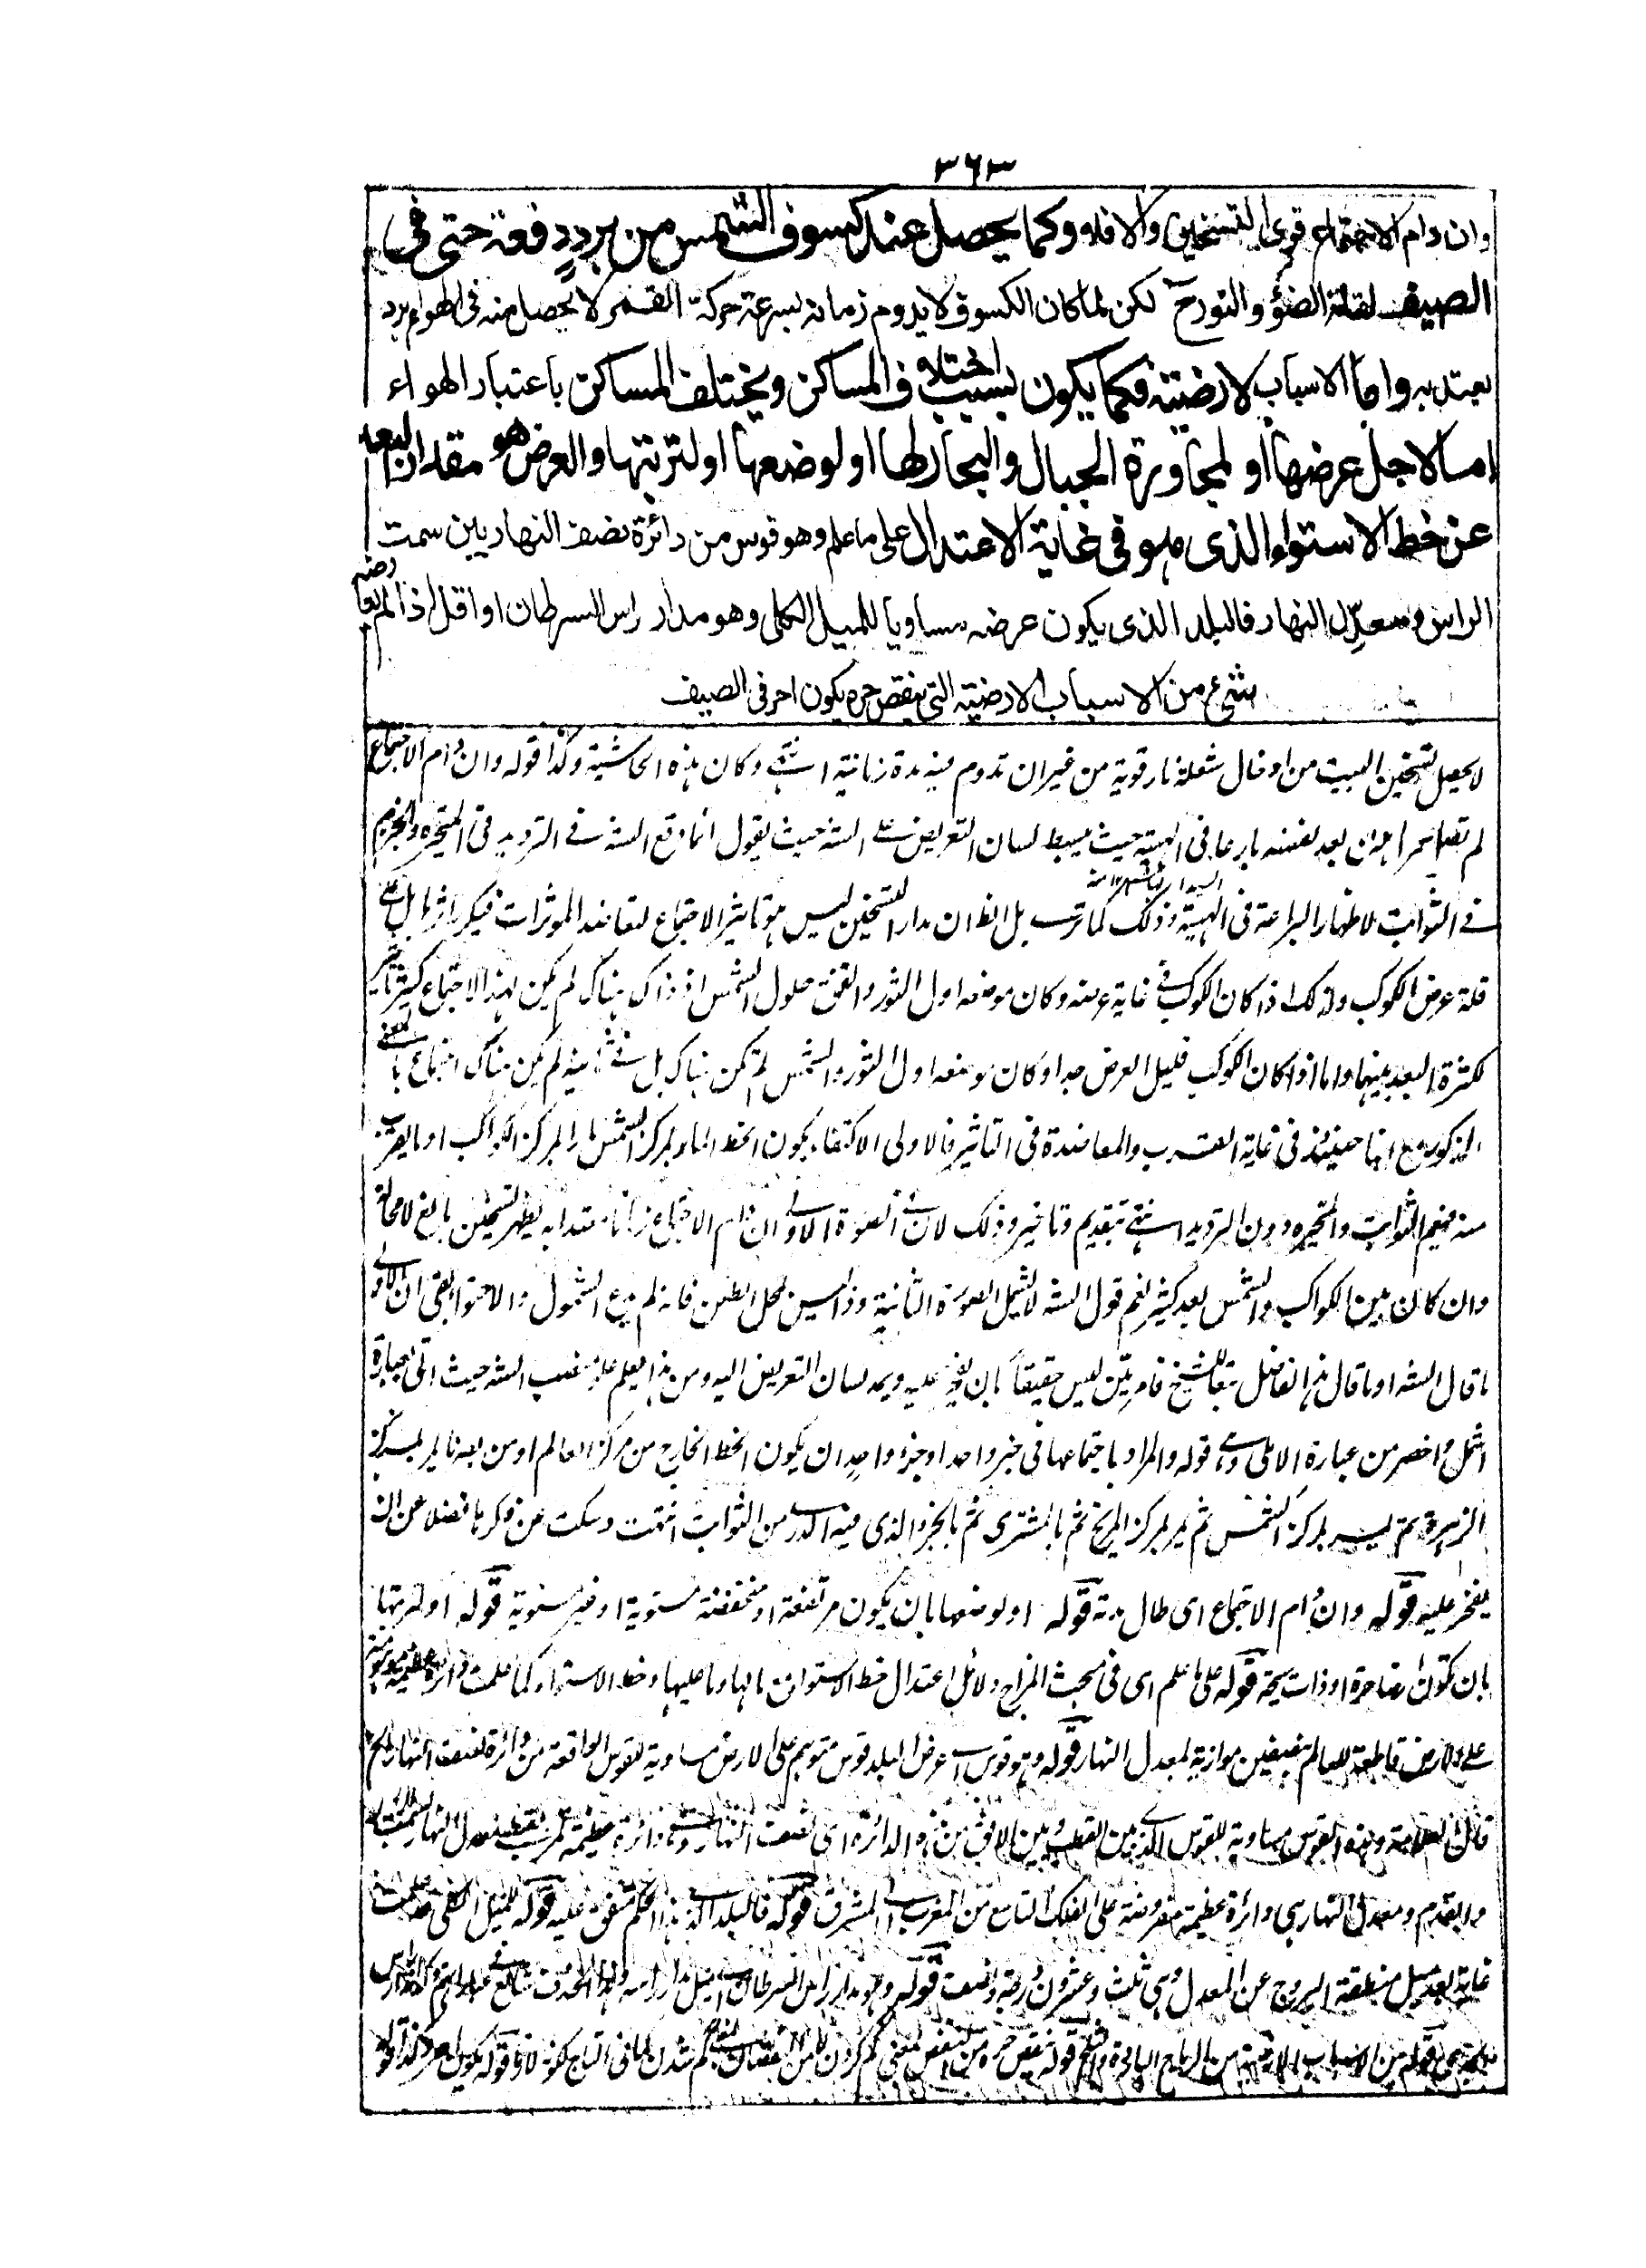 ٣٦٣
وان دام الاجتماع قوى التسخين والا فلا وكما يحصل عند كسوف الشمس من برد دفعة حتى فى
الصيف لقلة الضوٴ والنور ح لكن لما كان الكسوف لا يدوم زمانه لسرعة حركة القمر لا يحصل منه فى الهواء برد
يعتد به واما الاسباب الارضية فكما يكون بسبب اختلاف المساكن ويختلف المساكن باعتبار الهواء
اما لاجل عرضها او لمجاورة الجبال والبحار لها او لوضعها او لتربتها والعرض هو مقدار البعد
عن خط الاستواء الذى هو فى غاية الاعتدال على ما علم وهو قوس من دائرة نصف النهار بين سمت
الراس ومعدّل النهار فالبلد الذى يكون عرضه مساويا للميل الكلى وهو مدار راس السرطان او اقل اذا لم يعارضه
شىء من الاسباب الارضية التى ينقص حره يكون احر فى الصيف
لا يحصل تسخين البيت من ادخال شعلة نار قوية من غير ان تدوم فيه مدة زمانية انتهى وكان هذه الحاشية وكذا قوله وان دام الاجتماع
لم حيث يبسط لسان التعريض على الشه حيث يقول انما وقع الشه فى الترديد فى المتحيره والجزم
فى الثوابت لاظهار البراعة فى الهيئة وذلك كما ترى بل الظ ان مدار التسخين ليس هو تاثير الاجتماع لتعاضد الموثرات بل على
قلة عرض الكوكب ولذلك اذا كان الكوكب فى غاية عرضه وكان موضعه اول الثور واتفق حلول الشمس اذ ذاك هناك لم يكن لهذا الاجتماع كثير تاثير
لكثرة البعد بينهما واما اذا كان الكوكب قليل العرض جدا وكان موضعه اول الثور والشمس لم تكن هناك بل فى لم يكن هناك اجتماع بالمعنى
المذكور مع انها حينئذ فى غاية القرب والمعاضدة فى التاثير فالاولى الاكتفاء بكون الخط المار لمركز الشمس مارا لمركز الكواكب او ما يقرب
منه فيعم الثوابت والمتحيره دون الترديد انتهى بتقديم وتاخير وذلك لان فى الصورة الاولى ان دام الاجتماع زمانا معتدا به يظهر تسخين بالغ لا محالة
وان كان بين الكواكب والشمس بعد كثير نعم قول الشه لا يشمل الصورة الثانية وذا ليس لمحل الطعن فانه لم يدع الشمول والاحتوا بقى ان الاولى
ما قال الشه او ما قال هذا الفاضل تبعا للشيخ فامر بيّن ليس حقيقاً بان يفخر عليه ويمد لسان التعريض اليه ومن هذا يعلم علو منصب الشه حيث اتى بعبارة
اشمل واخصر من عبارة الاملى قوله والمراد باجتماعها فى حيز واحد او جزء واحد ان يكون الخط الخارج من مركز العالم او من بصرنا يمر بمركز
الزهرة ثم يسير بمركز الشمس ثم يمر بمركز المريخ ثم بالمشترى ثم بالجزو الذى فيه من الثوابت انتهت وسكت عن ذكرها فضلا عن ان
يفخر عليه قوله وان دام الاجتماع اى طال مدته قوله او لوضعها بان يكون مرتفعة او منخفضة مستوية او غير مستوية قوله او لتربتها
بان تكون او ذات سبخة قوله على ما علم اى فى مبحث المزاج ودلائل اعتدال خط الاستوا مع مالها وما عليها وخط الاستواء كما علمت دائرة عظيمة موهومة
على الارض قاطعة للعالم بنصفين موازية لمعدل النهار قوله وهو قوس عرض البلد قوس متوهم على الارض مساوية للقوس الواقعة من دائرة نصف النهار الخ
قال العلامة وهذه القوس مساوية للقوس الذى بين القطب وبين الافق من هذه الدائرة اى نصف النهار دائرة عظيمة تمر
ومعدل النهار هى دائرة عظيمة مفروضة على الفلك التاسع من المغرب الى المشرق قوله فالبلد الذى هذا الحكم متفق عليه قوله للميل الكلى
غاية بعد ميل منطقة البروج عن المعدل وهى ثلث وعشرون درجة ونصف قوله وهو مدار راس السرطان
قوله من الاسباب الارضية من الرياح الباردة والثلج قوله ينقص حره من النقص بمعنى كم كردن لا من النقصان بمعنى كم شدن